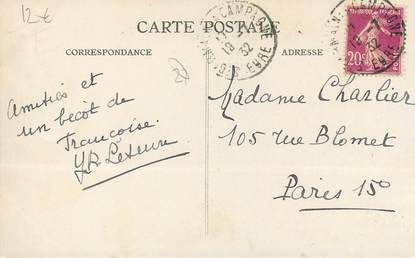 12€
CARTE POSTALE
CORRESPONDANCE
ADRESSE
CAMPAGNE
18
32
EURE
20c
Amitiés et
un bécot de
Françoise.
Madame Charlier
105 rue Blomet
Paris 15e